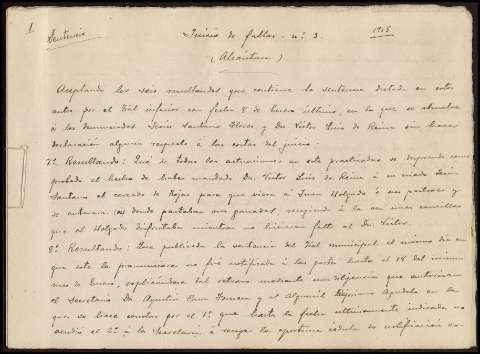 1.
Sentencia
Juicio de faltas - nº 3
1915
(Alcántara)
Aceptando los seis resultandos que contiene la sentencia dictada en estos
autos por el Tbal inferior con fecha 8 de Enero último, en la que se absuelve
á los denunciados Jesús Santano Flores y Dn Victor Luis de Reina sin hacer
declaración alguna respecto á las costas del juicio:
7º Resultando: Que de todas las actuaciones en este practicadas se desprende como
probado el hecho de haber mandado Dn Victor Luis de Reina á su criado Jesús
Santano al cercado de Rojas para que viera á Juan Holgado ó sus pastores y
se enterara donde pastaban sus ganados
que el Holgado disfrutaba mientras no hicieran falta al Dn Victor.
8º Resultando: Que publicada la sentencia del Tbal municipal el mismo dia en
que esta se pronunciara no fué notificada á las partes hasta el 14 del mismo
mes de Enero, explicándose tal retraso mediante una diligencia que autorizan
el Secretario Dn Agustin y el Alguacil Higinio Agudelo en la
que se hace constar por el 1º que hasta la fecha ultimamente indicada no
acudió el 2º á la Secretaria á recoger la oportuna cédula de notificación